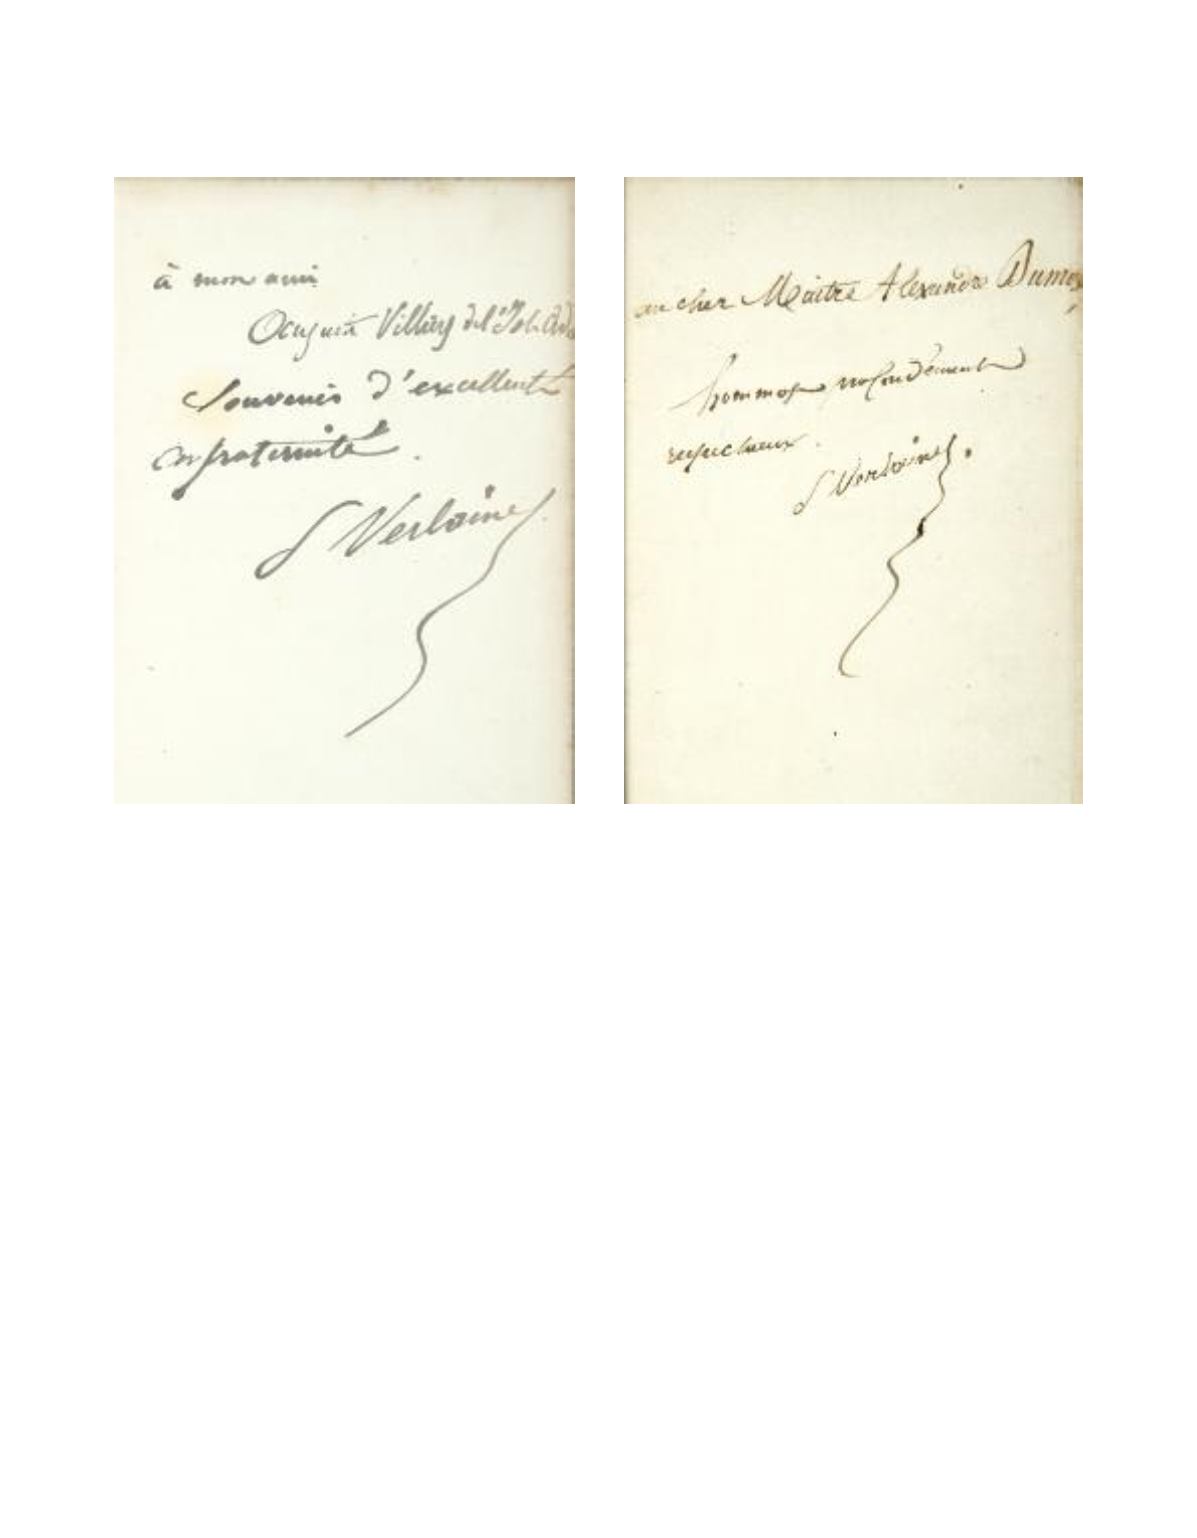 à mon ami
Auguste Villiers de l'Isle Ada
Souvenir d'excellente
confraternité.
P Verlaine
au cher Maître Alexandre Dumas
hommage profondément
respectueux.
P Verlaine.